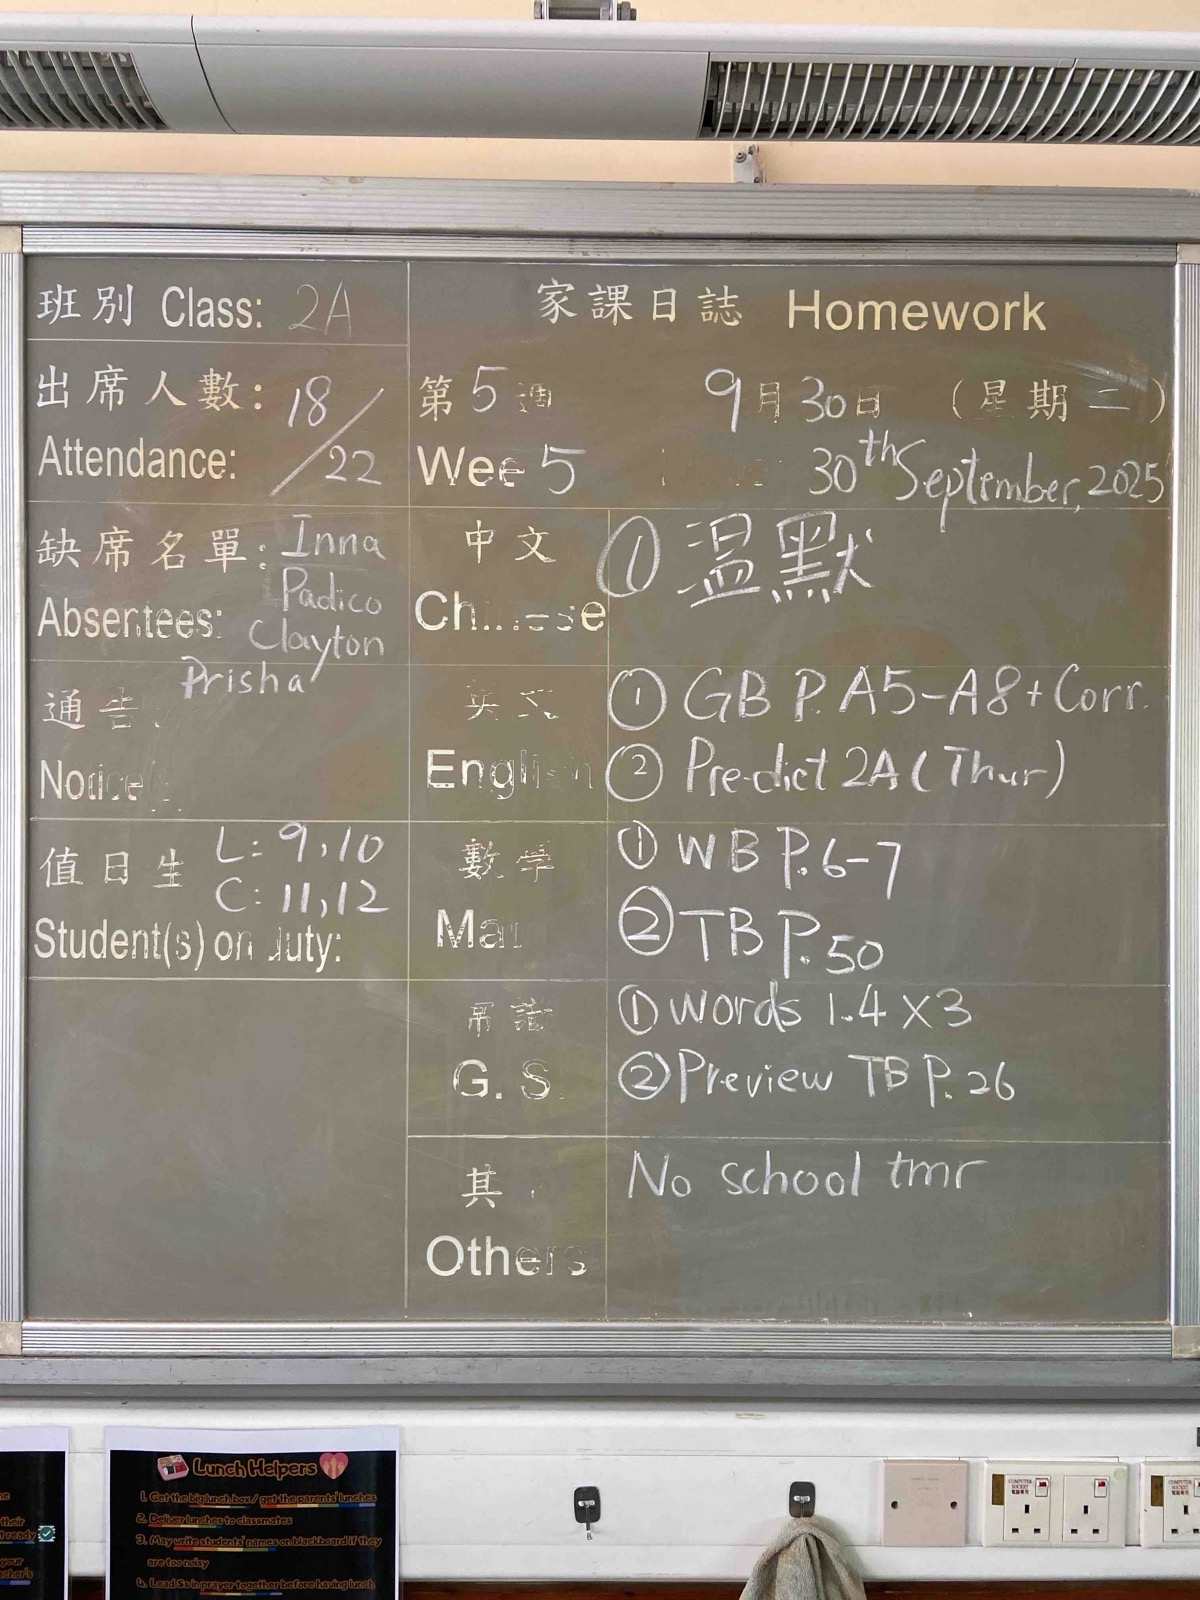 班別 Class: 2A
家課日誌 Homework
出席人數: 18/22
Attendance:
第 5 週
9月30日 (星期二)
Wee 5
30th September, 2025
缺席名單: Inna
Padico
Absentees: Clayton
Prisha
中文
Chinese
① 温默
通告
Notice
英文
English
① GB P. A5-A8 + Corr.
② Pre-dict 2A (Thur)
值日生 L: 9,10
C: 11,12
Student(s) on duty:
數學
Ma
① WB P.6-7
② TB P.50
常識
G. S.
① Words 1.4 x3
② Preview TB P.26
其
Others
No school tmr
Lunch Helpers
1. Get the big lunch box / get the parents' lunches
2. Deliver lunches to classmates
3. May write students' names on blackboard if they
are too noisy
4. Lead Ss in prayer together before having lunch
their
ready
your
COMPUTER SOCKET
COMPUTER SOCKET